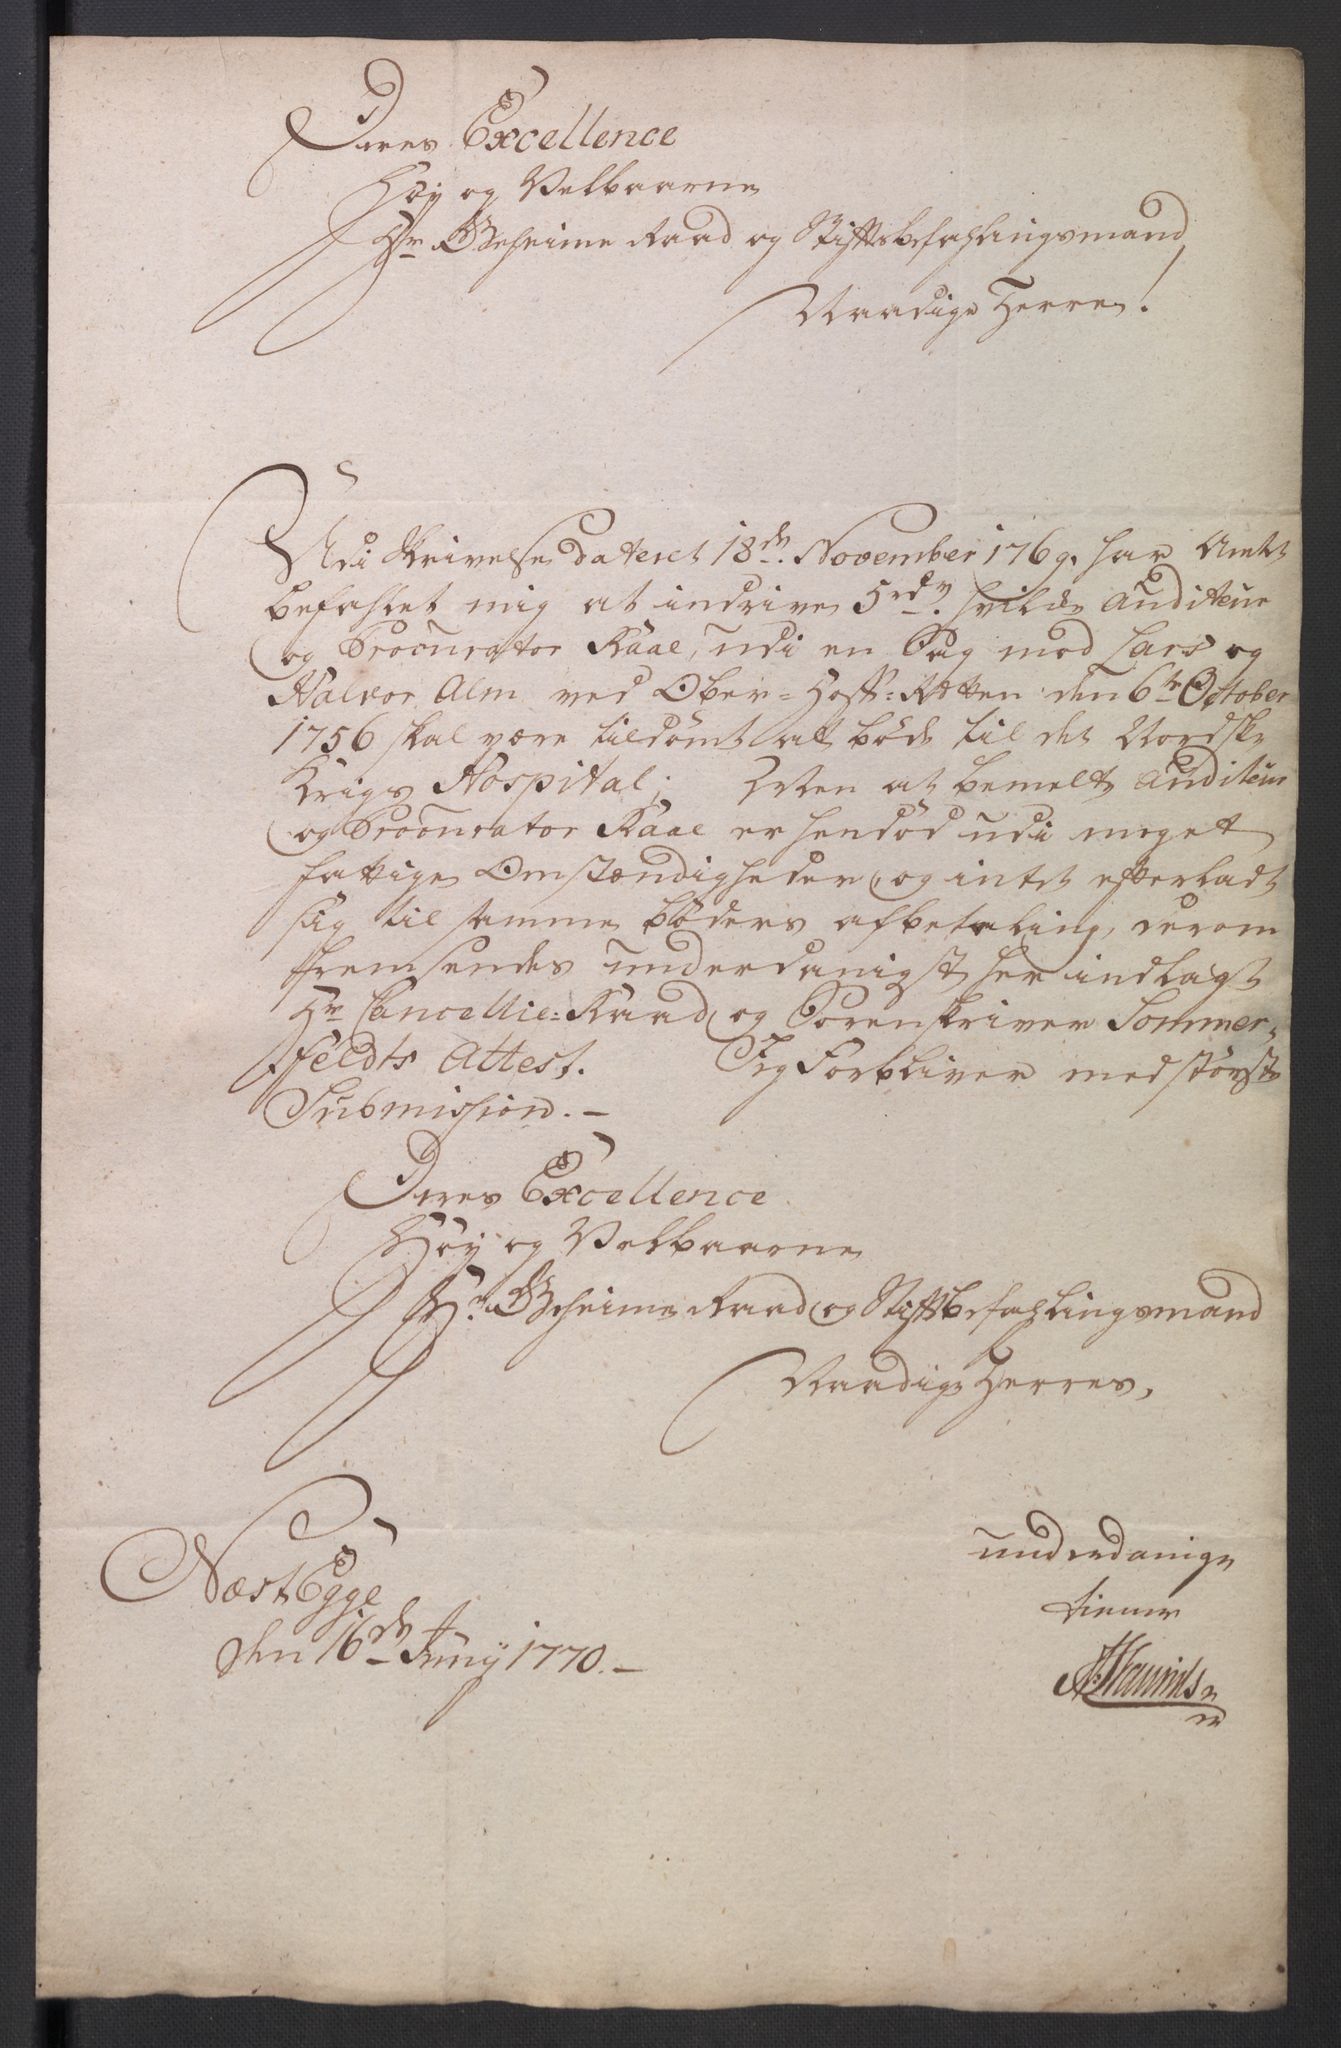 Deres Excellence
Høy og Velbaarne
Hr Geheime Raad og Stiftsbefahlingsmand,
Naadige Herre!
Udi Skrivelse dateret 18de November 1769. har Amtet
befahlet mig at indrive 5 rdr. hvilke Auditeur
og Procurator Kaae, udi en Sag mod Lars og
Halvor Alm ved Ober-Hoff-Retten den 6te October
1756 skal være tildømt at bøde til det Nordske
Krigs Hospital; Men at bemelte Auditeur
og Procurator Kaae er hendød udi meget
fattige Omstændigheder, og intet efterladt
sig til samme bøders afbetaling, derom
fremsendes underdanigst her indlagt
Hr Cancellie-Raad og Sorenskriver Sommer-
Feldts Attest. Jeg Forbliver med størst
Submission. –
Deres Excellence
Høy og Velbaarne
Hr. Geheime Raad og Stiftsbefahlingsmand
Naadige Herres,
Næst Egge
den 16de Juny 1770. –
underdanige
tiener